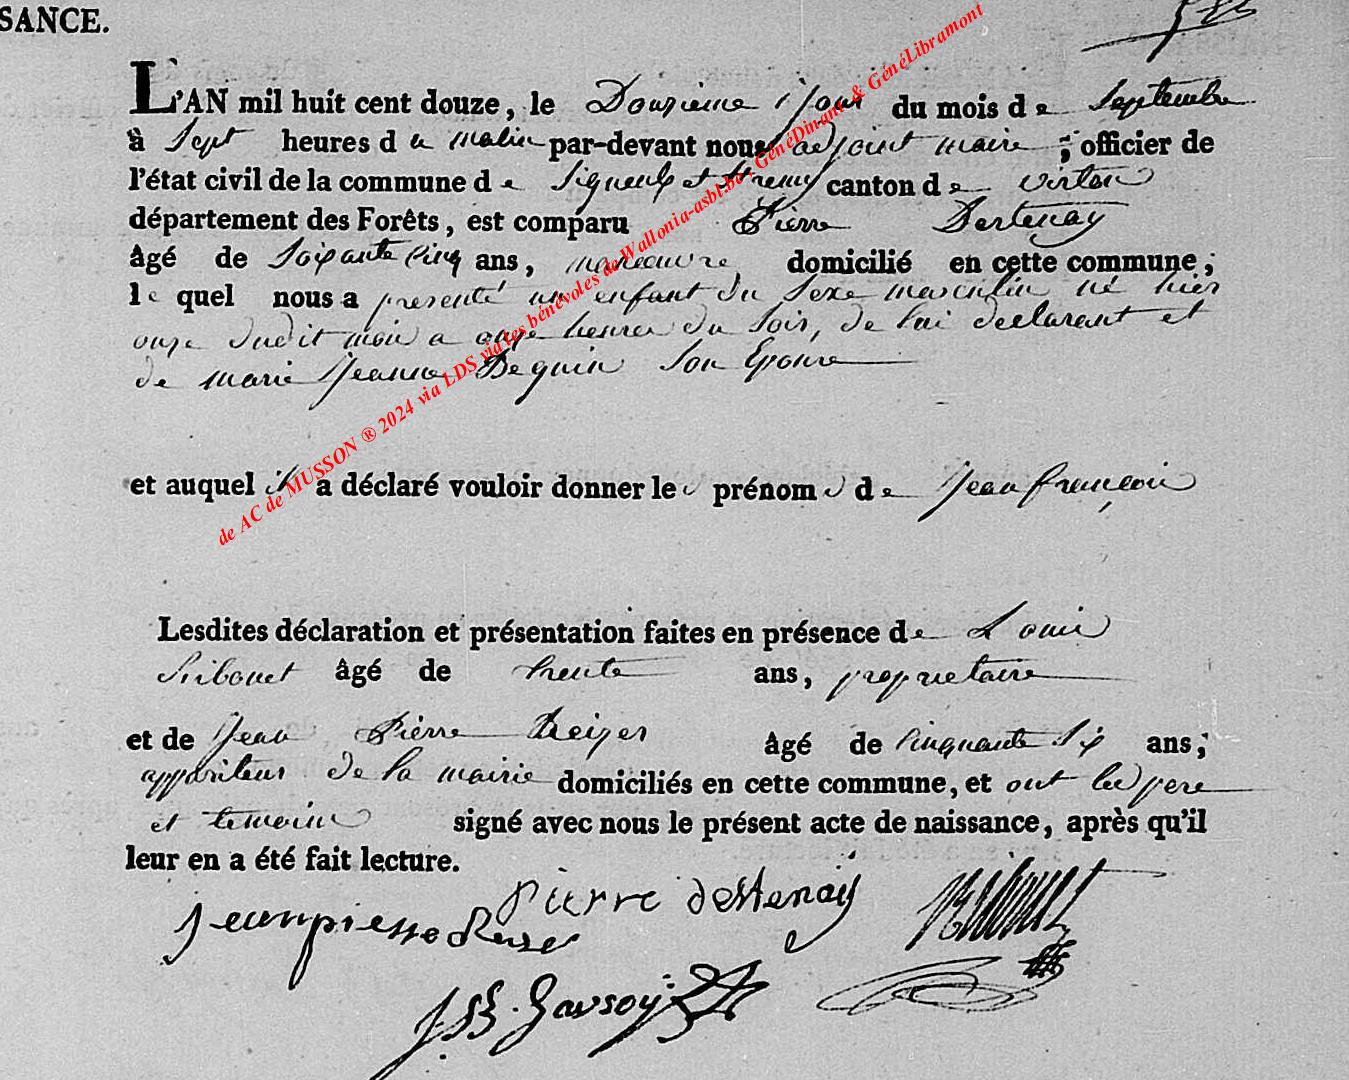 SANCE.
L'AN mil huit cent douze, le Douzieme jour du mois de Septembre
à Sept heures du matin par-devant nous adjoint maire ; officier de
l'état civil de la commune de Signeulx et canton de virton
département des Forêts, est comparu Pierre Dertenay
âgé de Soixante cinq ans, maneuvre domicilié en cette commune;
lequel nous a presenté un enfant du Sexe masculin né hier
onze dudit mois a onze heures du Soir, de lui declarant et
de marie Jeanne Deguin Son Epouse
et auquel il a déclaré vouloir donner le prénom de Jean françois
Lesdites déclaration et présentation faites en présence de Louis
Ribonet âgé de trente ans, proprietaire
et de Jean Pierre Reizer âgé de cinquante Six ans;
appariteur de la mairie domiciliés en cette commune, et ont les pere
et temoins signé avec nous le présent acte de naissance, après qu'il
leur en a été fait lecture.
Pierre destenay
Jeanpierre
J. B. Gavroy
de AC de MUSSON ® 2024 via LDS via les bénévoles de Wallonia-asbl.be, GénéDinant & GénéLibramont